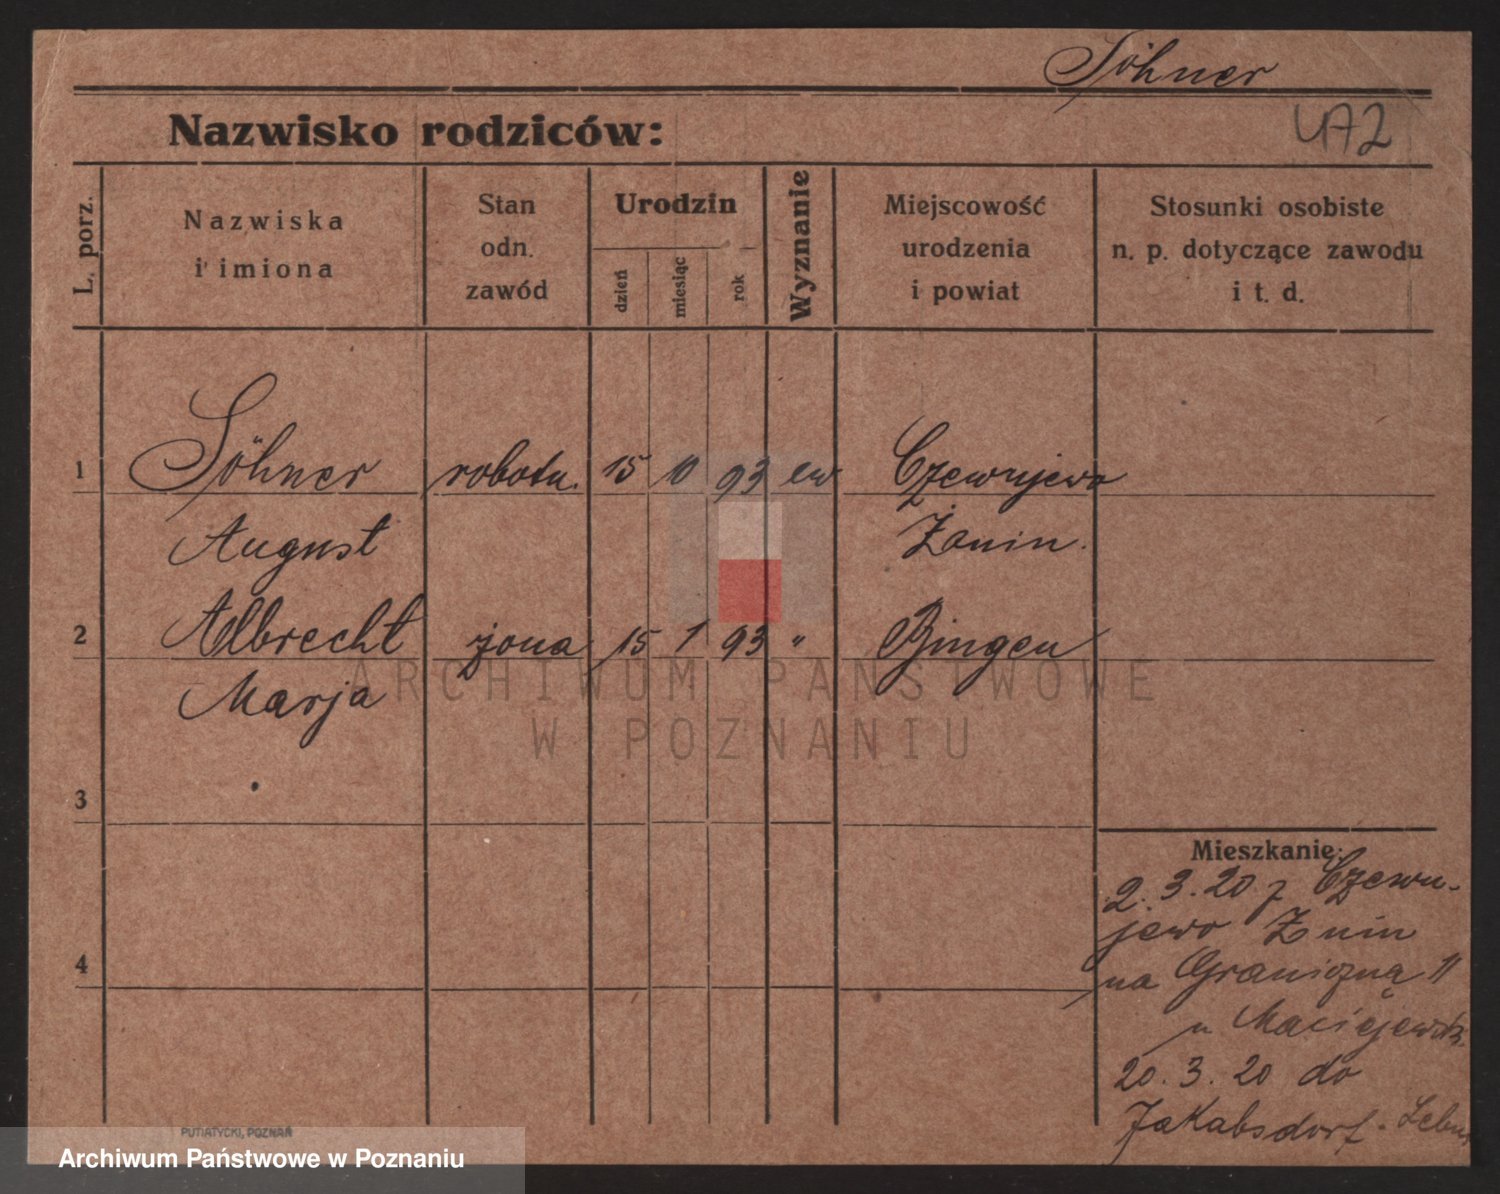 Söhner
Nazwisko rodziców:
472
L. porz.
Nazwiska
i imiona
Stan
odn.
zawód
Urodzin
dzień
miesiąc
rok
Wyznanie
Miejscowość
urodzenia
i powiat
Stosunki osobiste
n. p. dotyczące zawodu
i t. d.
1 Söhner robotn. 15 10 93 ew Czewujewo
August Żnin.
2 Albrecht żona 15 1 93 " Bingen
Marja
ARCHIWUM PAŃSTWOWE
W POZNANIU
3
Mieszkanie:
2.3.20 z Czewu-
jewo Żnin
4
na Graniczną 11
u Maciejewsk.
20.3.20 do
Jakabsdorf - Lebus
PUTIATYCKI, POZNAŃ
Archiwum Państwowe w Poznaniu